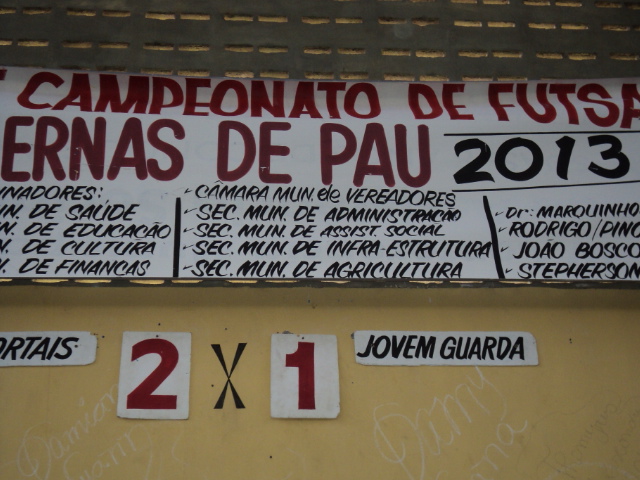 CAMPEONATO DE FUTSA
ERNAS DE PAU 2013
INADORES:
UN. DE SAÚDE
N. DE EDUCAÇÃO
N. DE CULTURA
N. DE FINANCAS
CÂMARA MUN. de VEREADORES
SEC. MUN. DE ADMINISTRAÇÃO
SEC. MUN. DE ASSIST. SOCIAL
SEC. MUN. DE INFRA-ESTRUTURA
SEC. MUN. DE AGRICULTURA
Dr: MARQUINHO
RODRIGO/PINO
JOÃO BOSCO
STEPHERSON
ORTAIS 2 X 1 JOVEM GUARDA
Damian
Damy